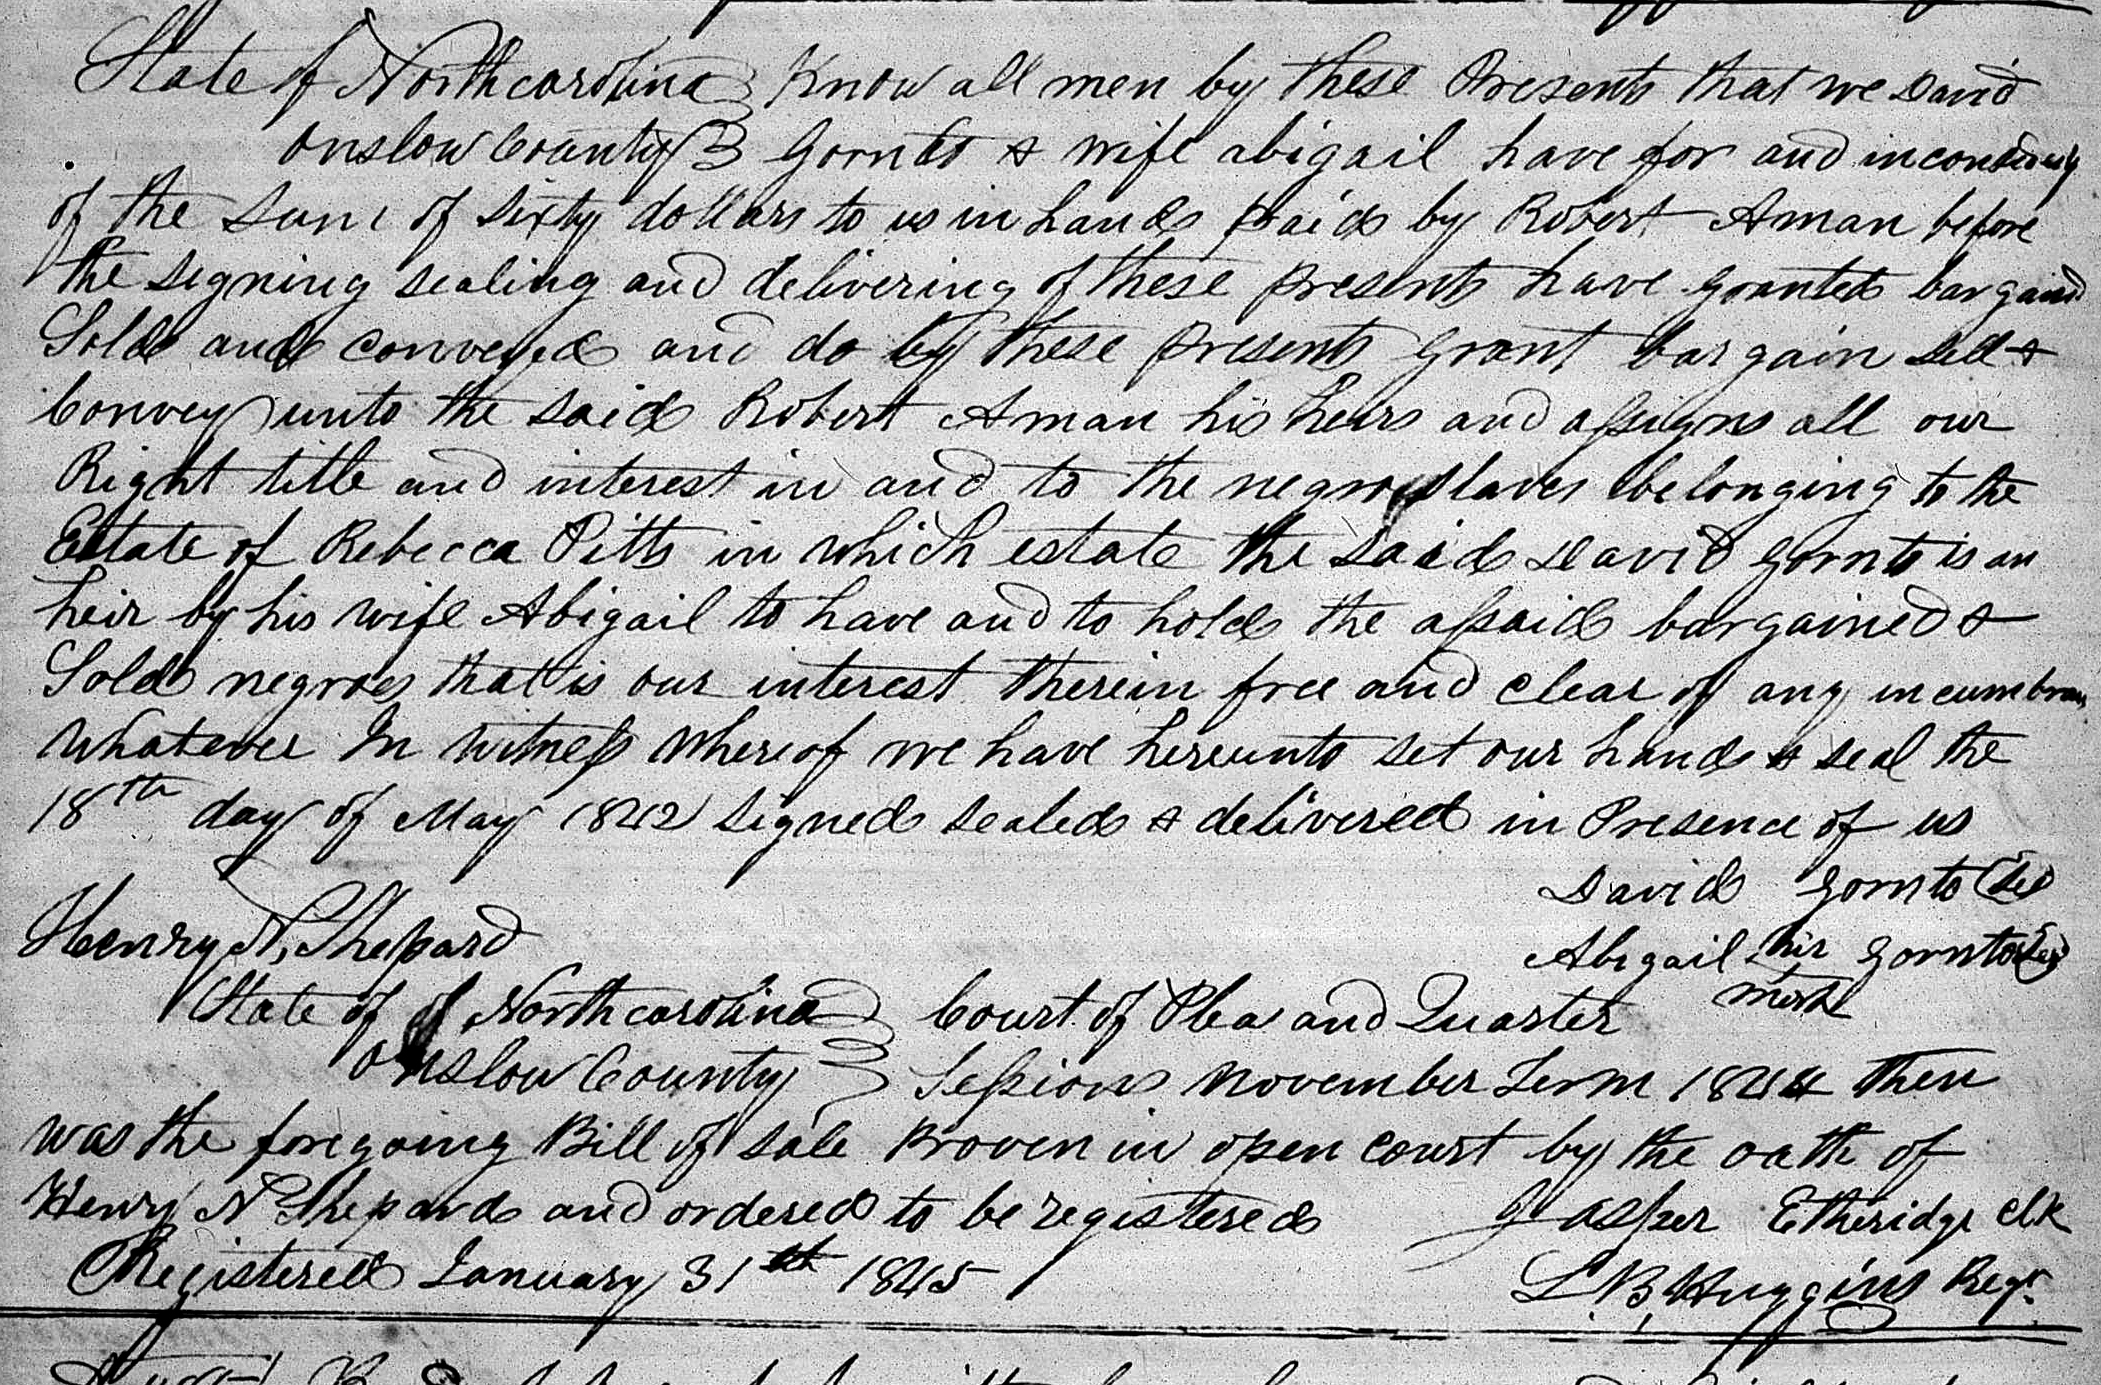 State of Northcarolina Know all men by these Presents that we David
Onslow County Gornto & wife abigail have for and in
of the sum of sixty dollars to us in hand paid by Robert Aman before
the signing sealing and delivering of these presents have granted bargaind
Sold and conveyed and do by these presents grant bargain sell &
Convey unto the said Robert Aman his heirs and assigns all our
Right title and interest in and to the negro slaves belonging to the
Estate of Rebecca Pitts in which estate the said David Gornto is an
heir by his wife Abigail to have and to hold the afsaid bargained &
Sold negroes that is our interest therein free and clear of any
whatever In witness whereof we have hereunto set our hands & seal the
18th day of May 1842 signed sealed & delivered in Presence of us
David Gornto
Henry N, Shepard
Abigail her Gornto
mark
State of of Northcarolina Court of Plea and Quarter
Onslow County Sessions November Term 1844 then
was the foregoing Bill of sale proven in open court by the oath of
Henry N Shepard and ordered to be registered Jasper Etheridge clk
Registered January 31st 1845 L. B, Huggins Regr.